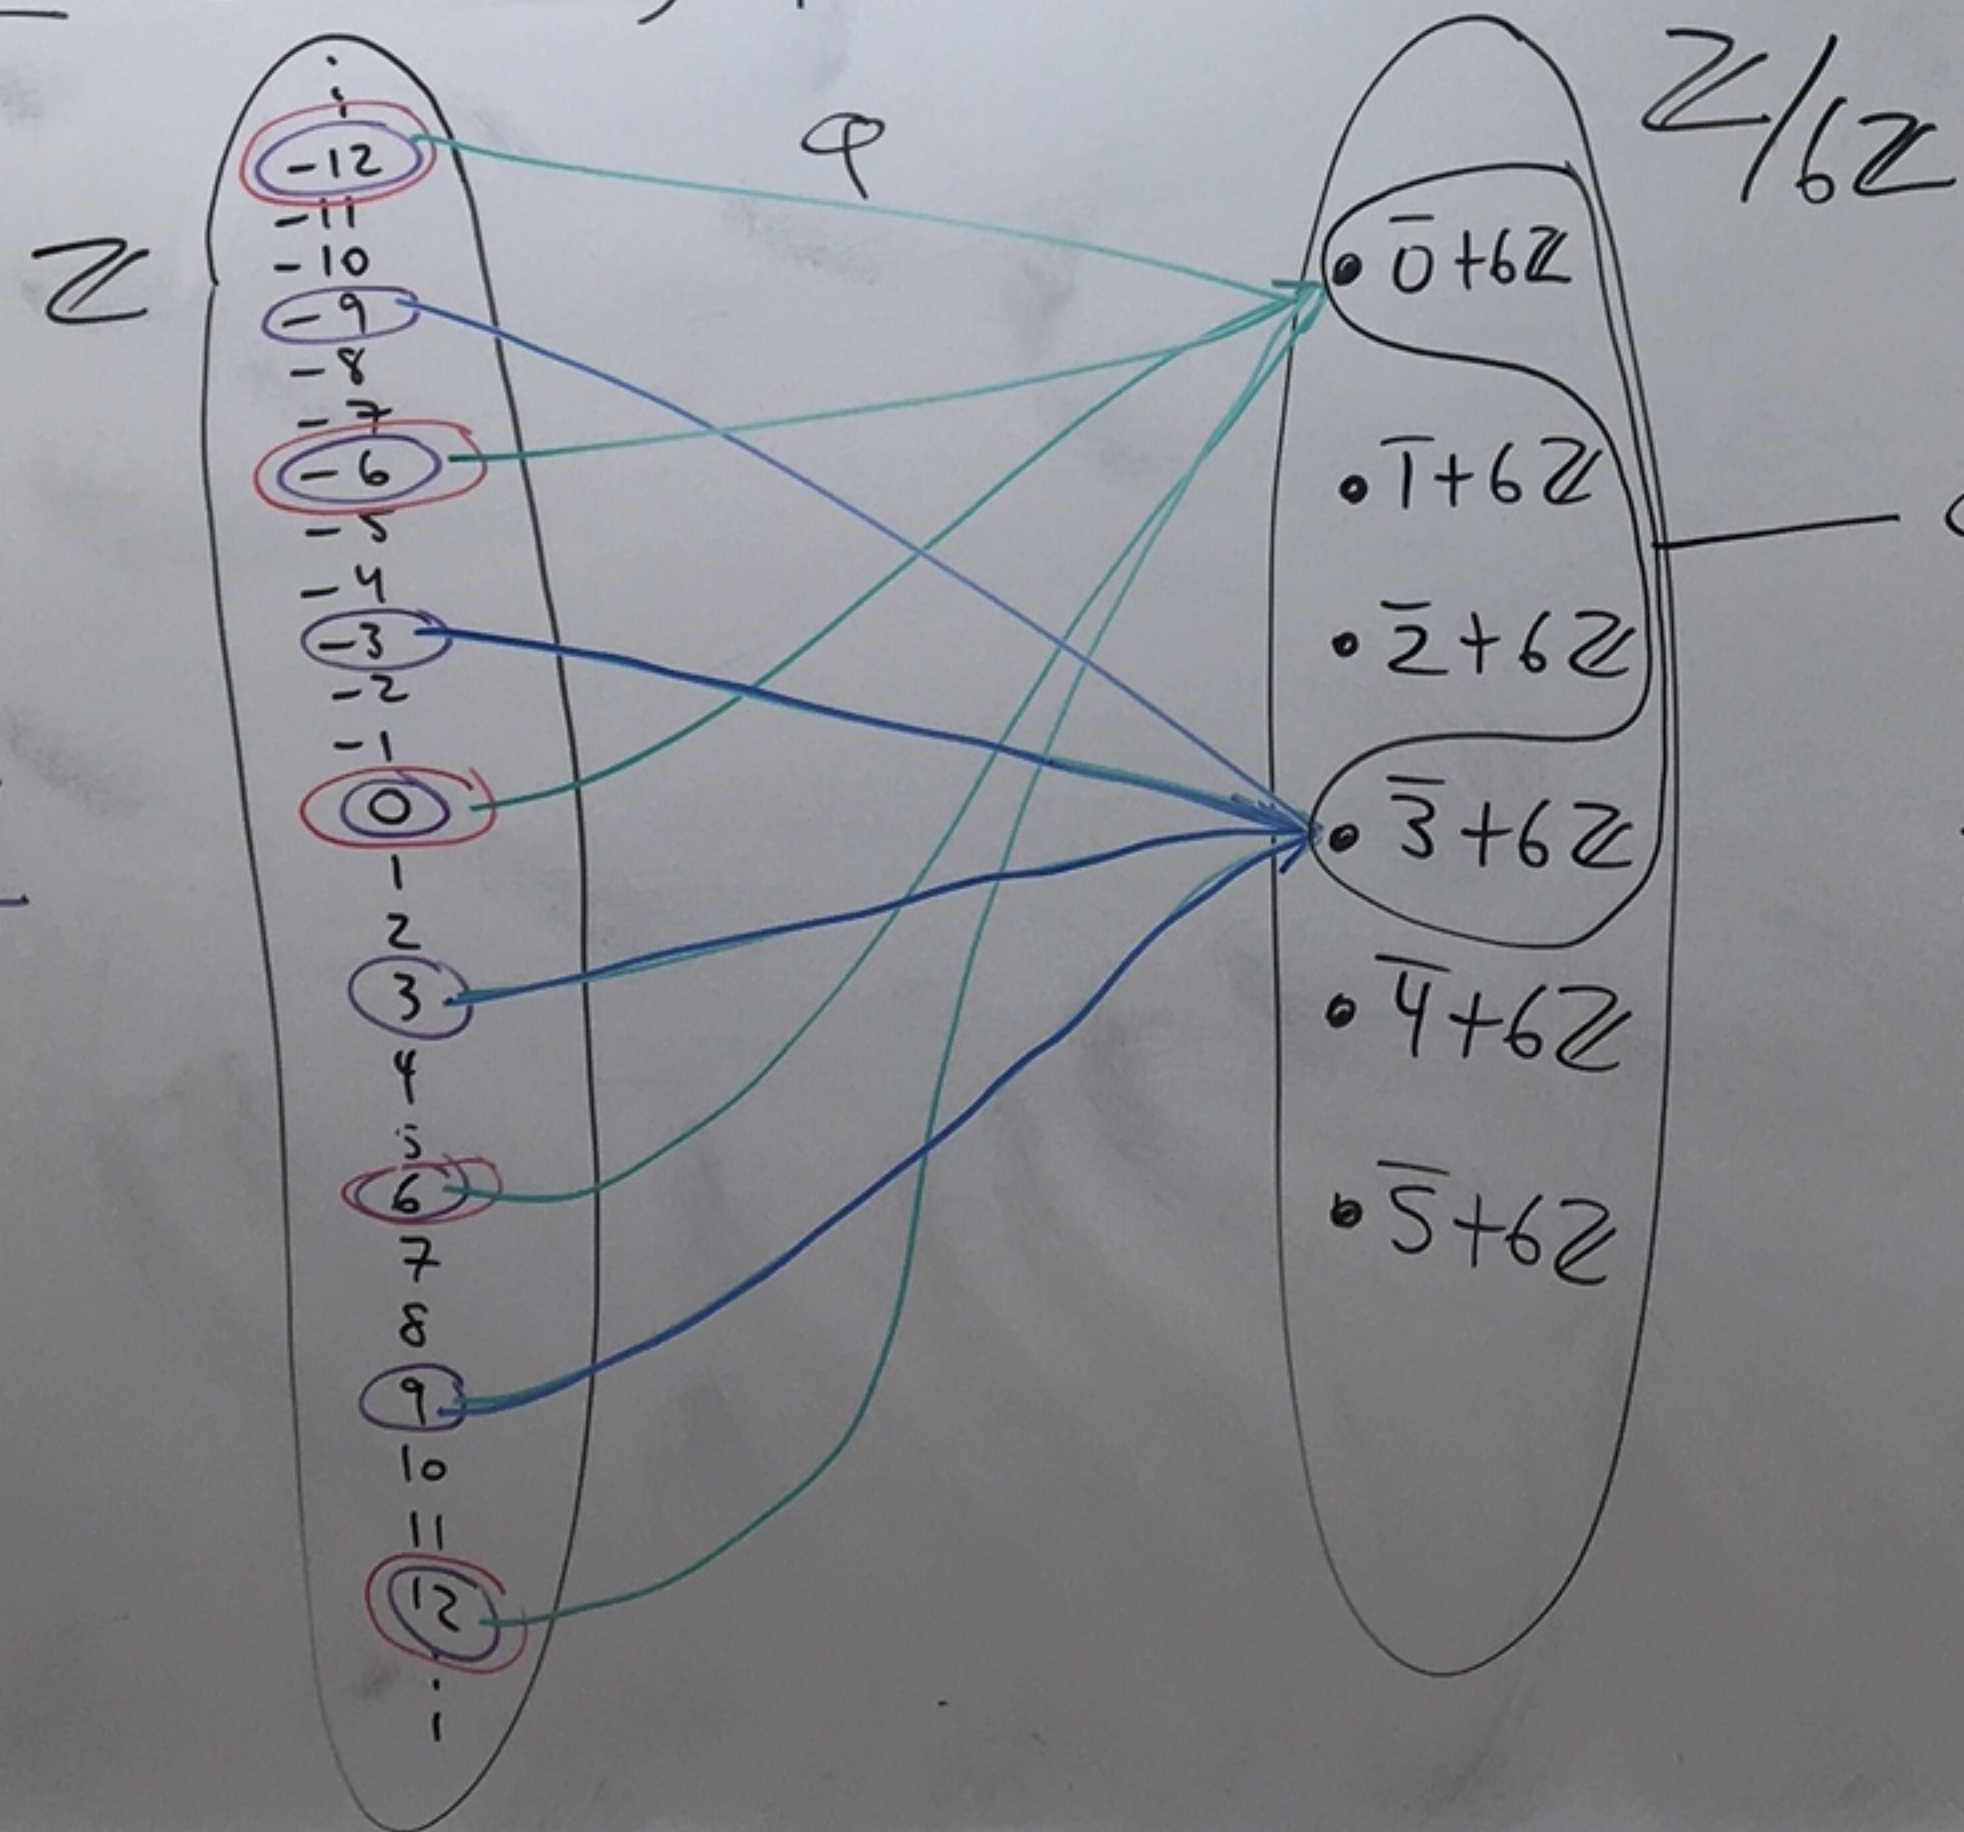 φ
ℤ/6ℤ
ℤ
-12
-11
-10
-9
-8
-7
-6
-5
-4
-3
-2
-1
0
1
2
3
4
5
6
7
8
9
10
11
12
0̅+6ℤ
1̅+6ℤ
2̅+6ℤ
3̅+6ℤ
4̅+6ℤ
5̅+6ℤ